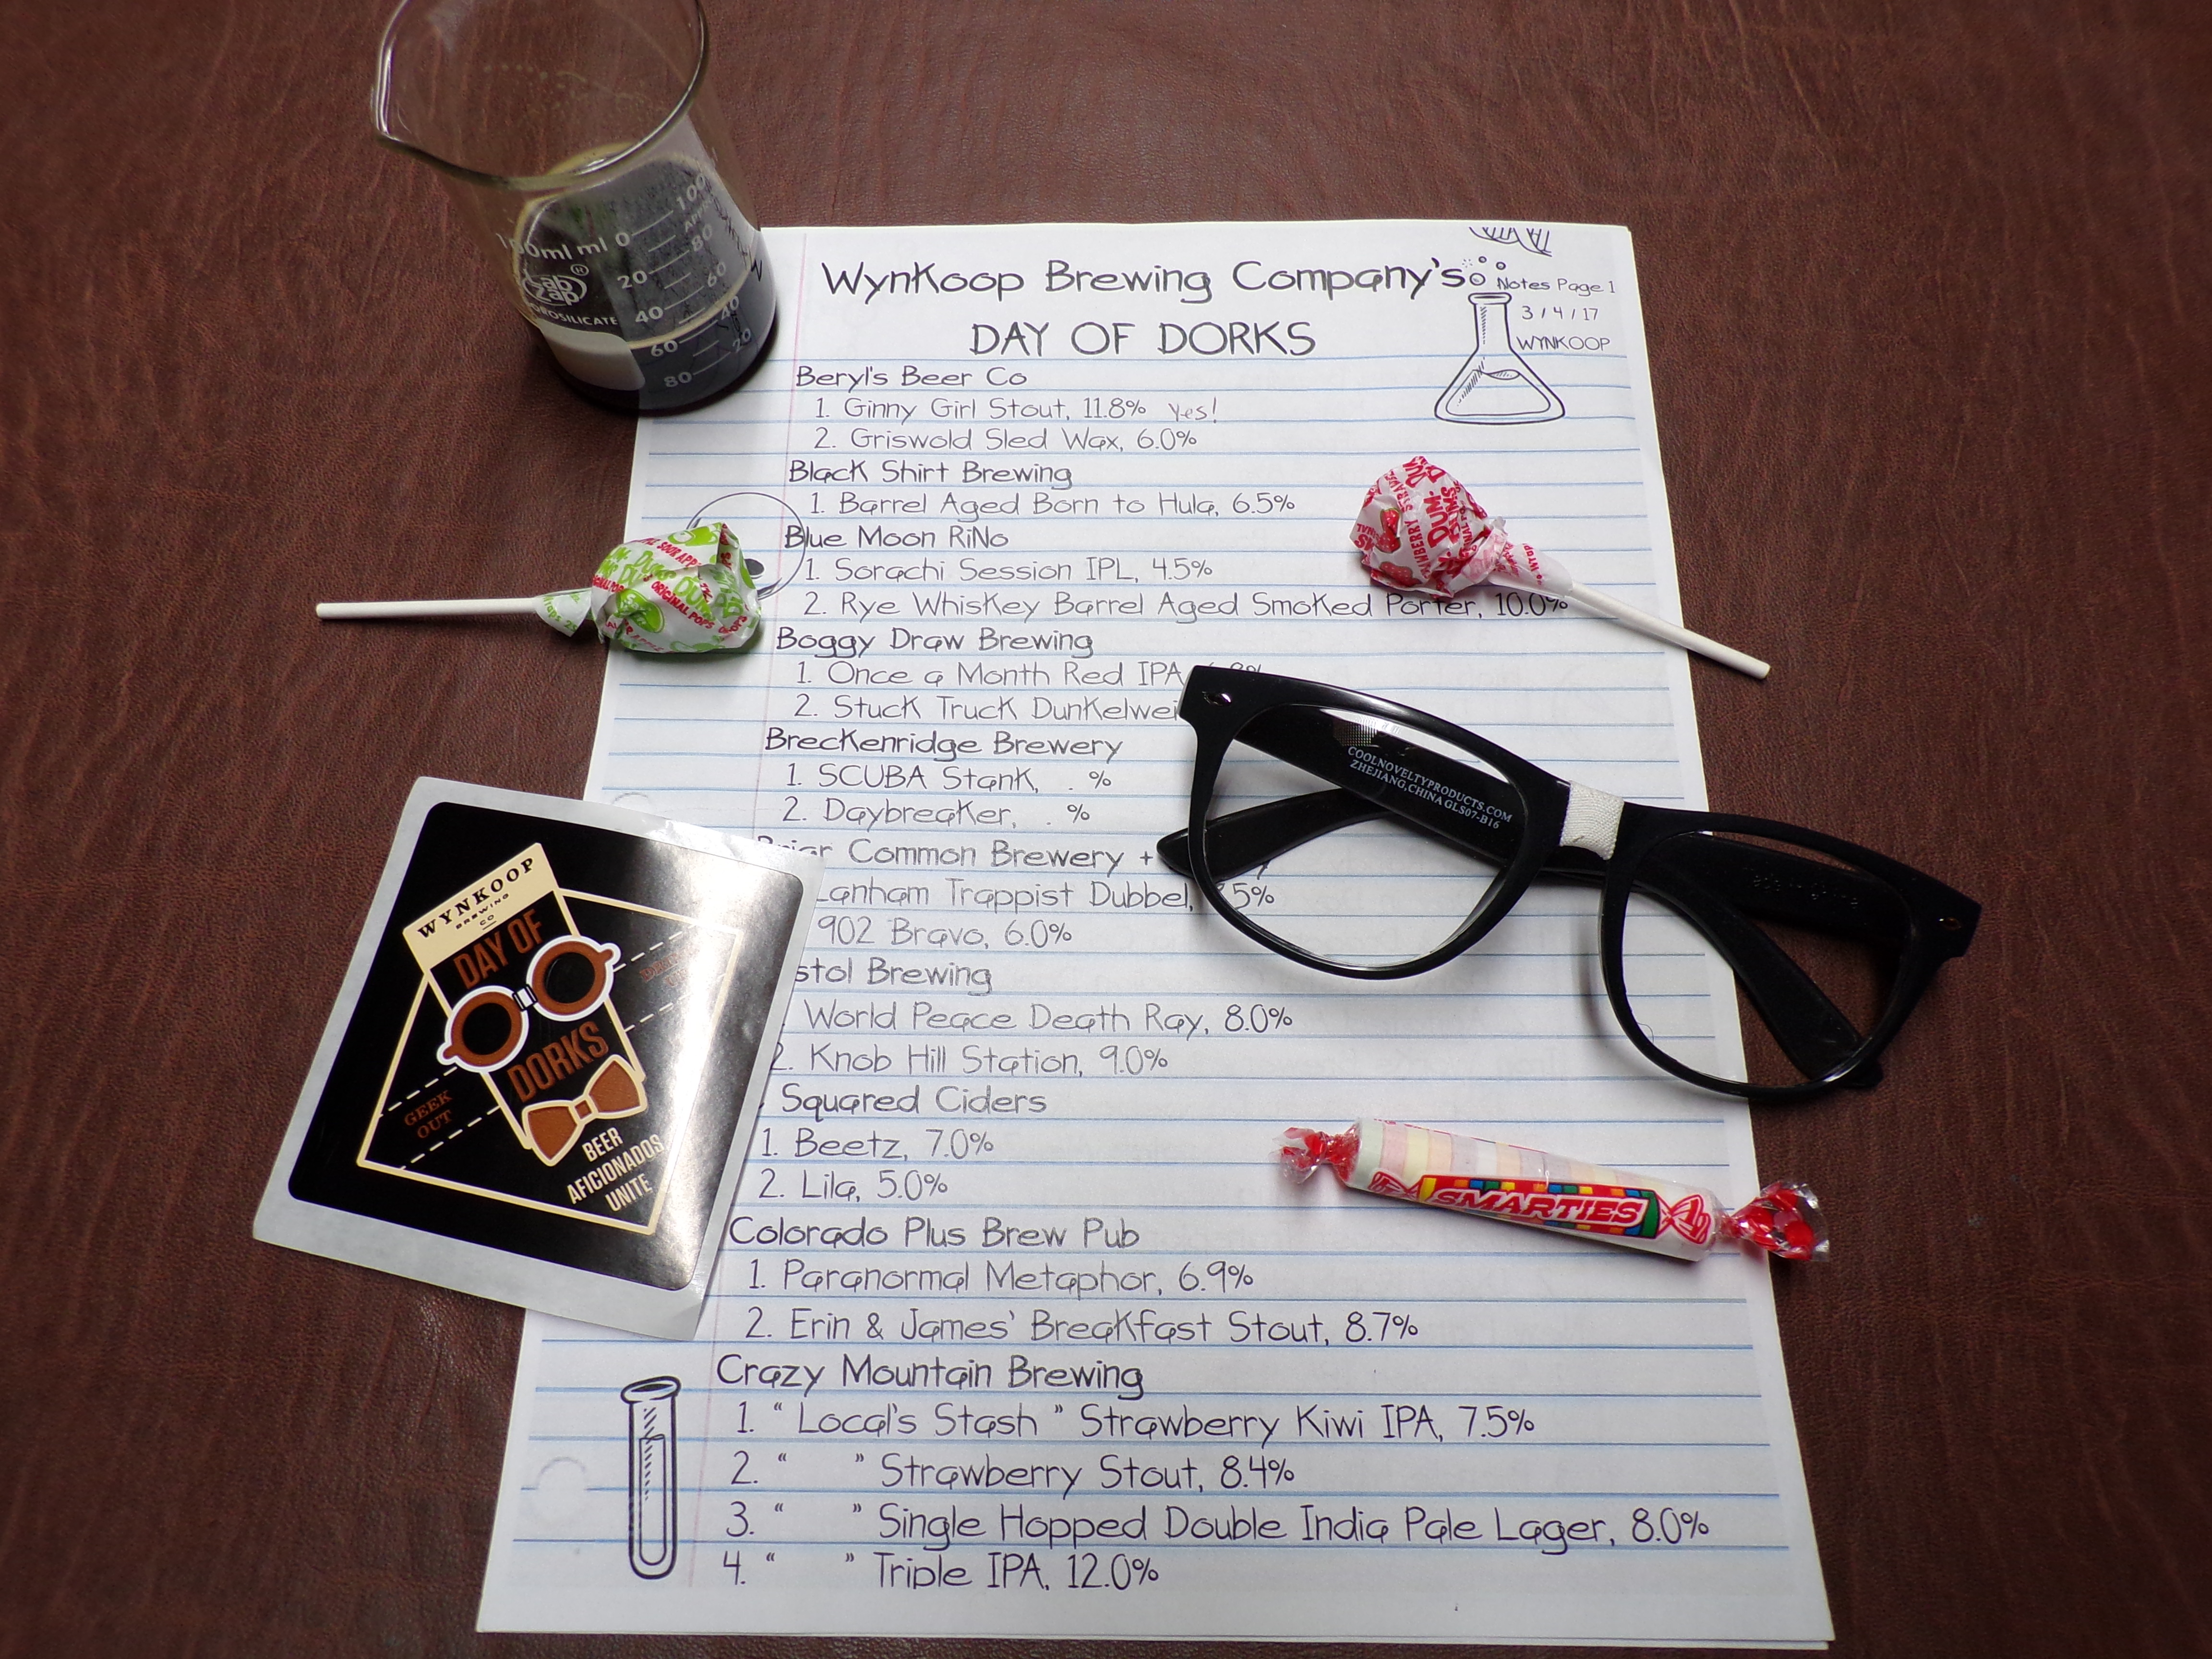 WynKoop Brewing Company's
Notes Page 1
3/4/17
WYNKOOP
DAY OF DORKS
Beryl's Beer Co
1. Ginny Girl Stout, 11.8% Yes!
2. Griswold Sled Wax, 6.0%
Black Shirt Brewing
1. Barrel Aged Born to Hula, 6.5%
Blue Moon RiNo
1. Sorachi Session IPL, 4.5%
2. Rye Whiskey Barrel Aged Smoked Porter, 10.0%
Boggy Draw Brewing
1. Once a Month Red IPA
2. Stuck Truck Dunkelwei
Breckenridge Brewery
1. SCUBA Stank, . %
2. Daybreaker, . %
Common Brewery +
Lanham Trappist Dubbel, 5%
902 Bravo, 6.0%
stol Brewing
World Peace Death Ray, 8.0%
2. Knob Hill Station, 9.0%
Squared Ciders
1. Beetz, 7.0%
2. Lila, 5.0%
Colorado Plus Brew Pub
1. Paranormal Metaphor, 6.9%
2. Erin & James' Breakfast Stout, 8.7%
Crazy Mountain Brewing
1. “ Local's Stash ” Strawberry Kiwi IPA, 7.5%
2. “ ” Strawberry Stout, 8.4%
3. “ ” Single Hopped Double India Pale Lager, 8.0%
4. “ ” Triple IPA, 12.0%
100ml ml 0
20
40
60
80
100
80
60
40
20
Lab Zap ®
OROSILICATE
SOUR APPLE
ORIGINAL POPS
STRAWBERRY
DUM-
DUMS
COOLNOVELTYPRODUCTS.COM
ZHEJIANG,CHINA GLS07-B16
WYNKOOP
BREWING
CO
DAY OF
DORKS
GEEK
OUT
BEER
AFICIONADOS
UNITE
SMARTIES